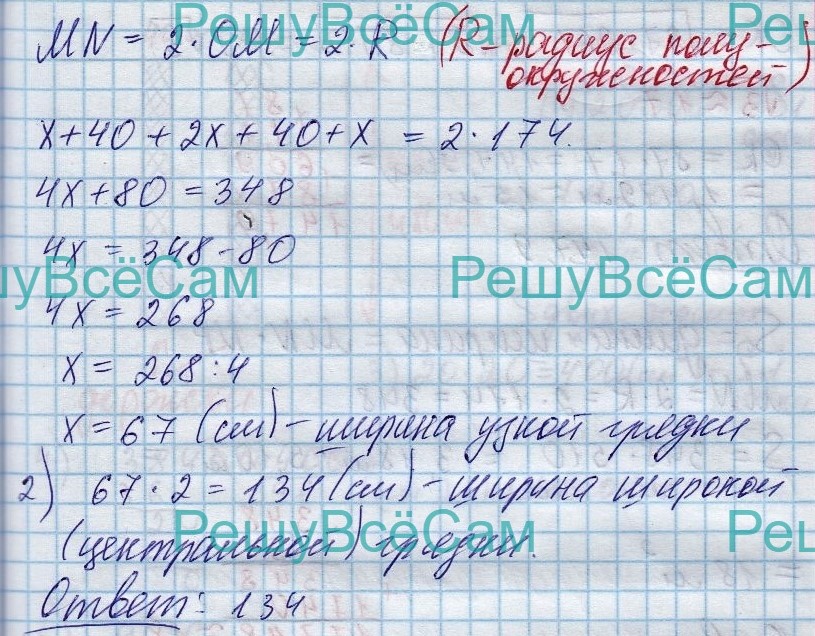 РешуВсёСам Реш
MN = 2·OM = 2·R (R - радиус полу-
окружностей)
x+40+2x+40+x = 2·174.
4x+80 = 348
4x = 348-80
уВсёСам РешуВсёСам
4x = 268
x = 268:4
x = 67 (см) - ширина узкой грядки
2) 67·2 = 134 (см) - ширина широкой
РешуВсёСам Реш
(центральной) грядки.
Ответ: 134